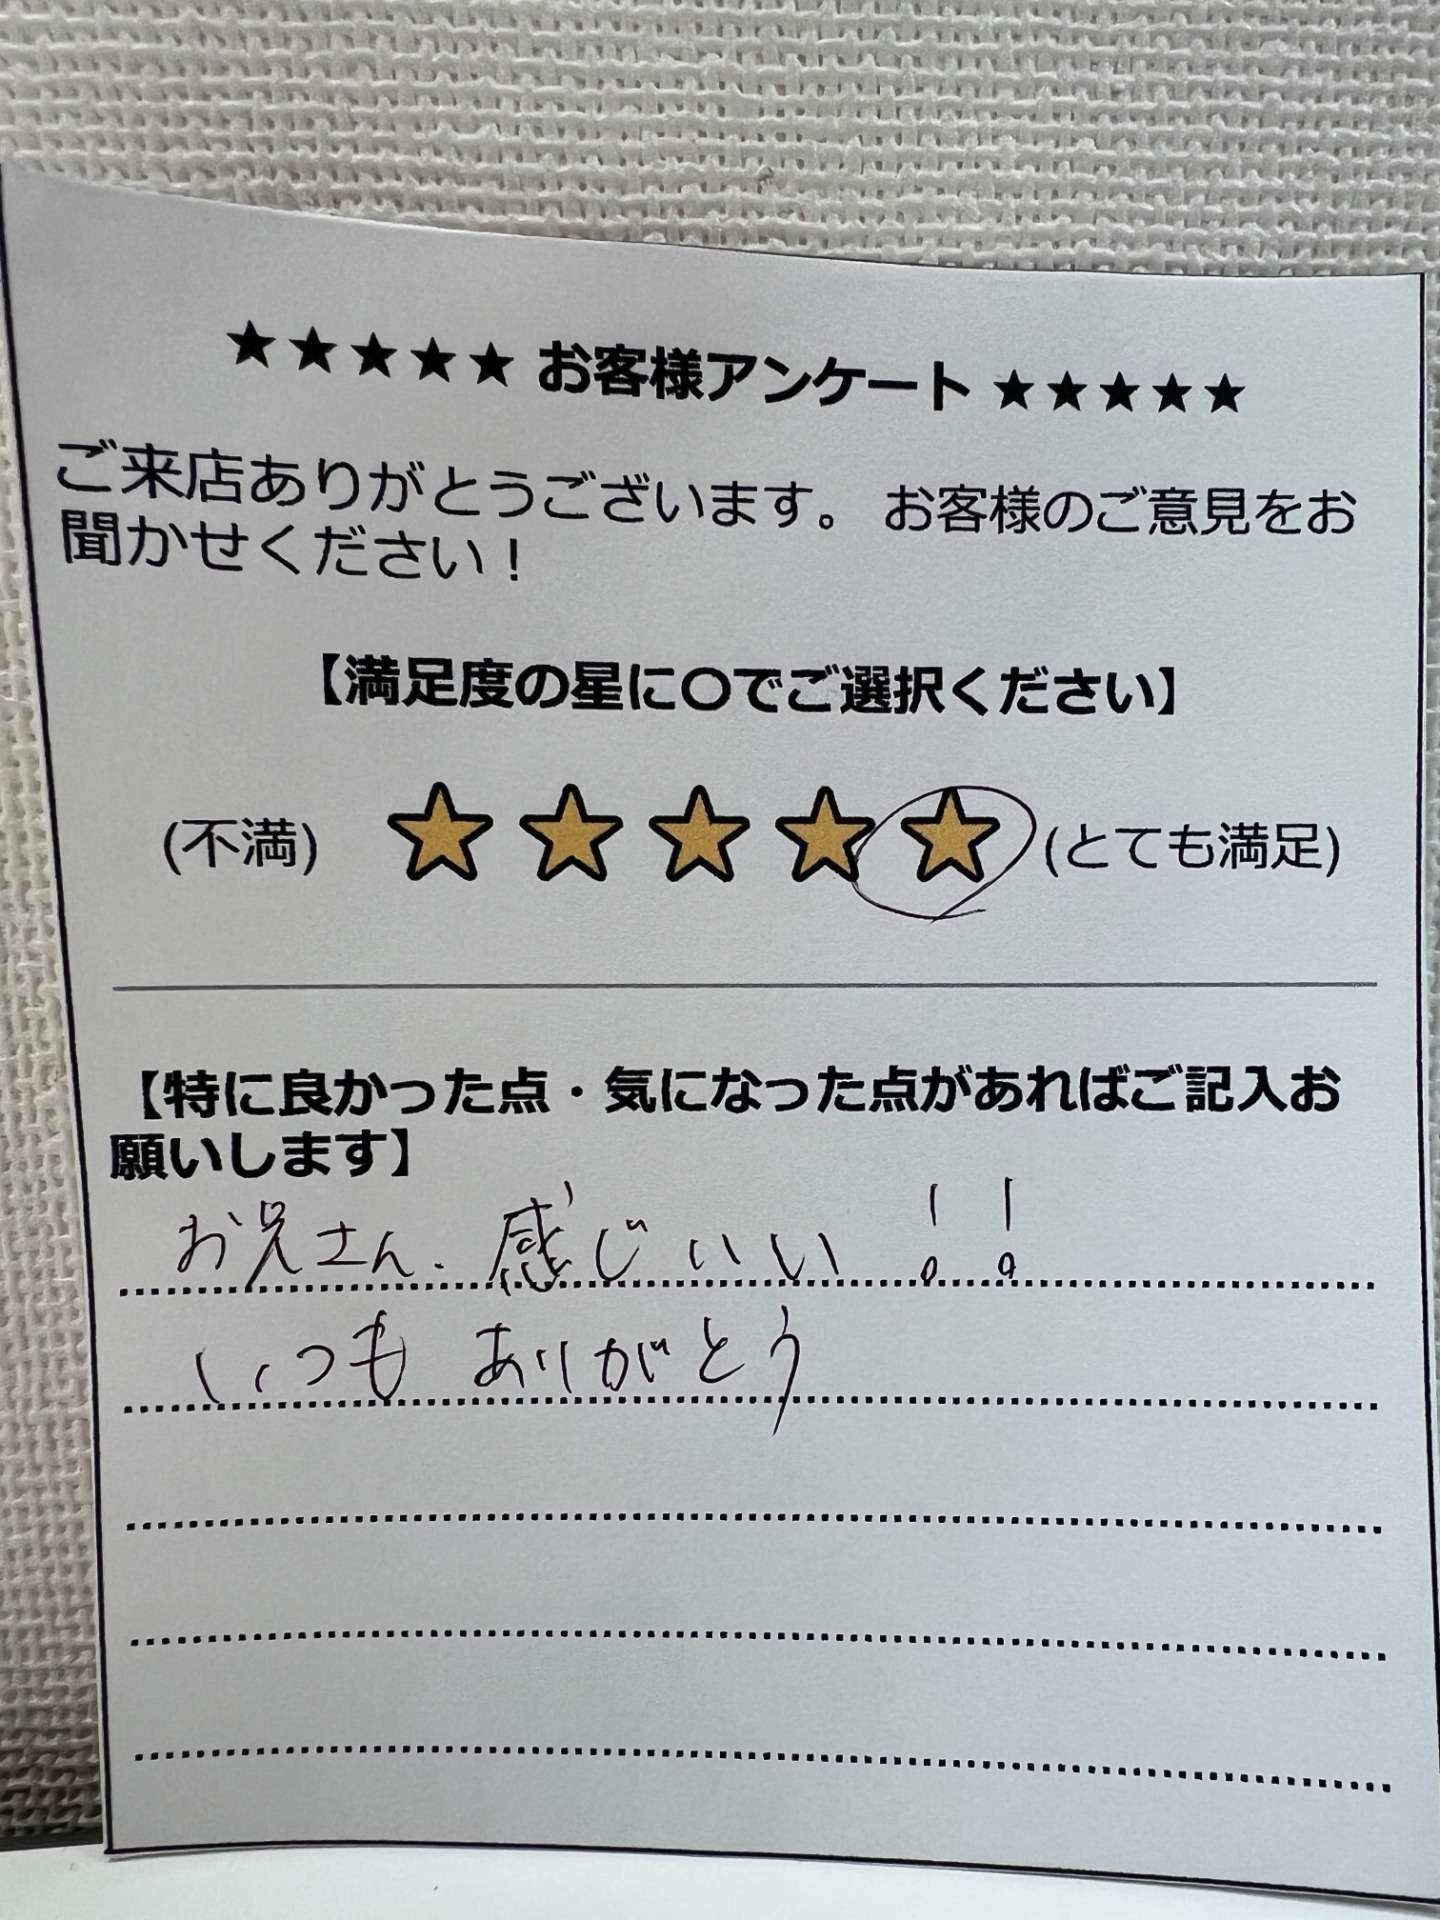 ★★★★★ お客様アンケート ★★★★★
ご来店ありがとうございます。 お客様のご意見をお
聞かせください！
【満足度の星に〇でご選択ください】
(不満) ★★★★★ (とても満足)
【特に良かった点・気になった点があればご記入お
願いします】
お兄さん、感じいい！！
いつもありがとう